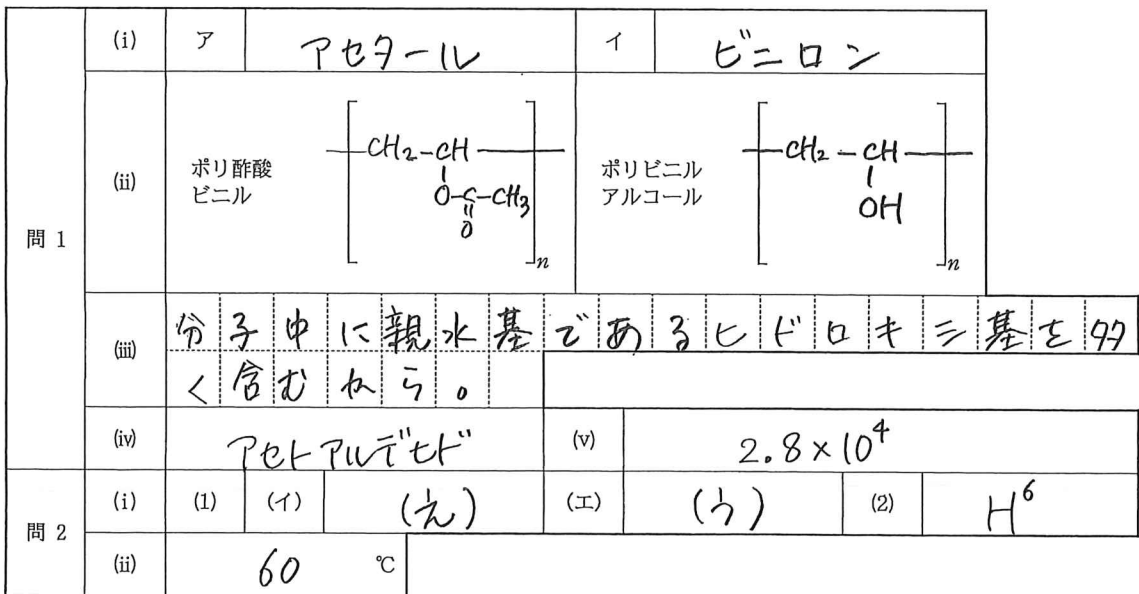 問 1
(i) ア アセタール イ ビニロン
(ii) ポリ酢酸ビニル
CH2-CH
O-C-CH3
O
n
ポリビニルアルコール
CH2-CH
OH
n
(iii) 分子中に親水基であるヒドロキシ基を多
く含むから。
(iv) アセトアルデヒド (v) 2.8×10⁴
問 2
(i) (1) (イ) (え) (エ) (う) (2) H⁶
(ii) 60 ℃